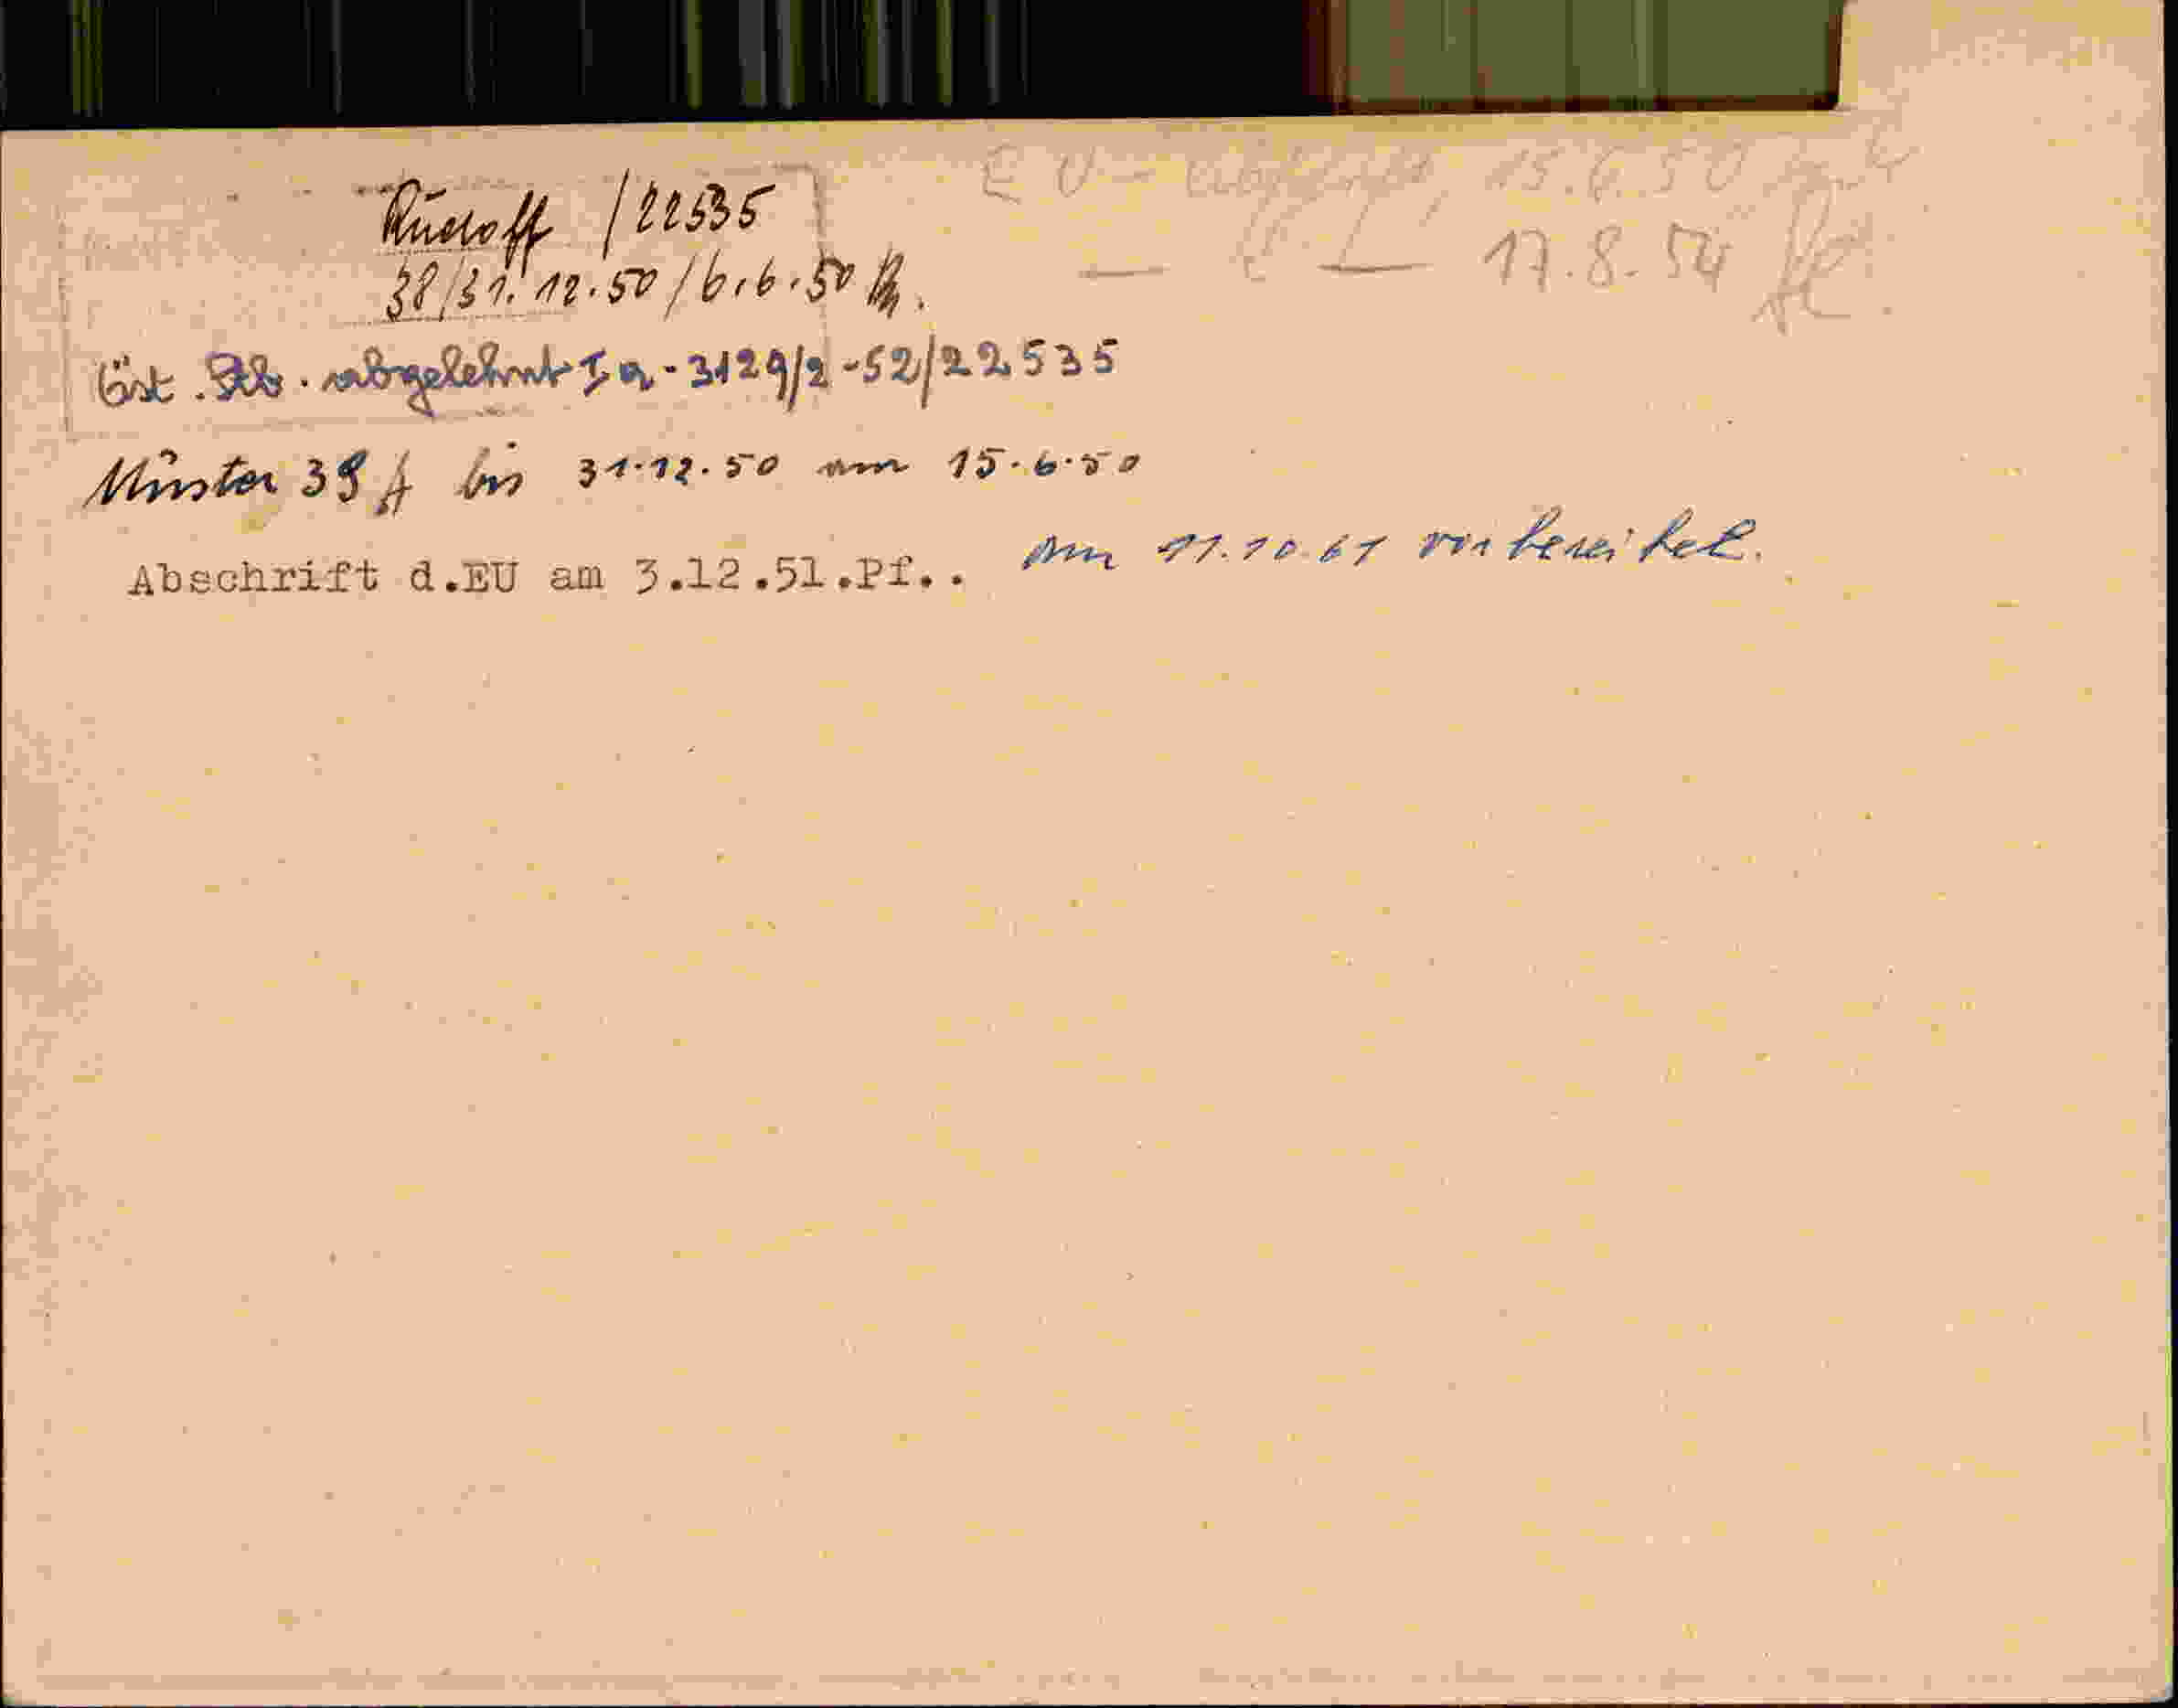 Rudolf /22535
EU - 15.6.50
38/31.12.50/6.6.50
17.8.54
Öst. Stb. abgelehnt I a-3129/2-52/22535
Münster 38 A bis 31.12.50 am 15.6.50
Abschrift d.EU am 3.12.51.Pf.. am 11.10.61 vorbereitet.